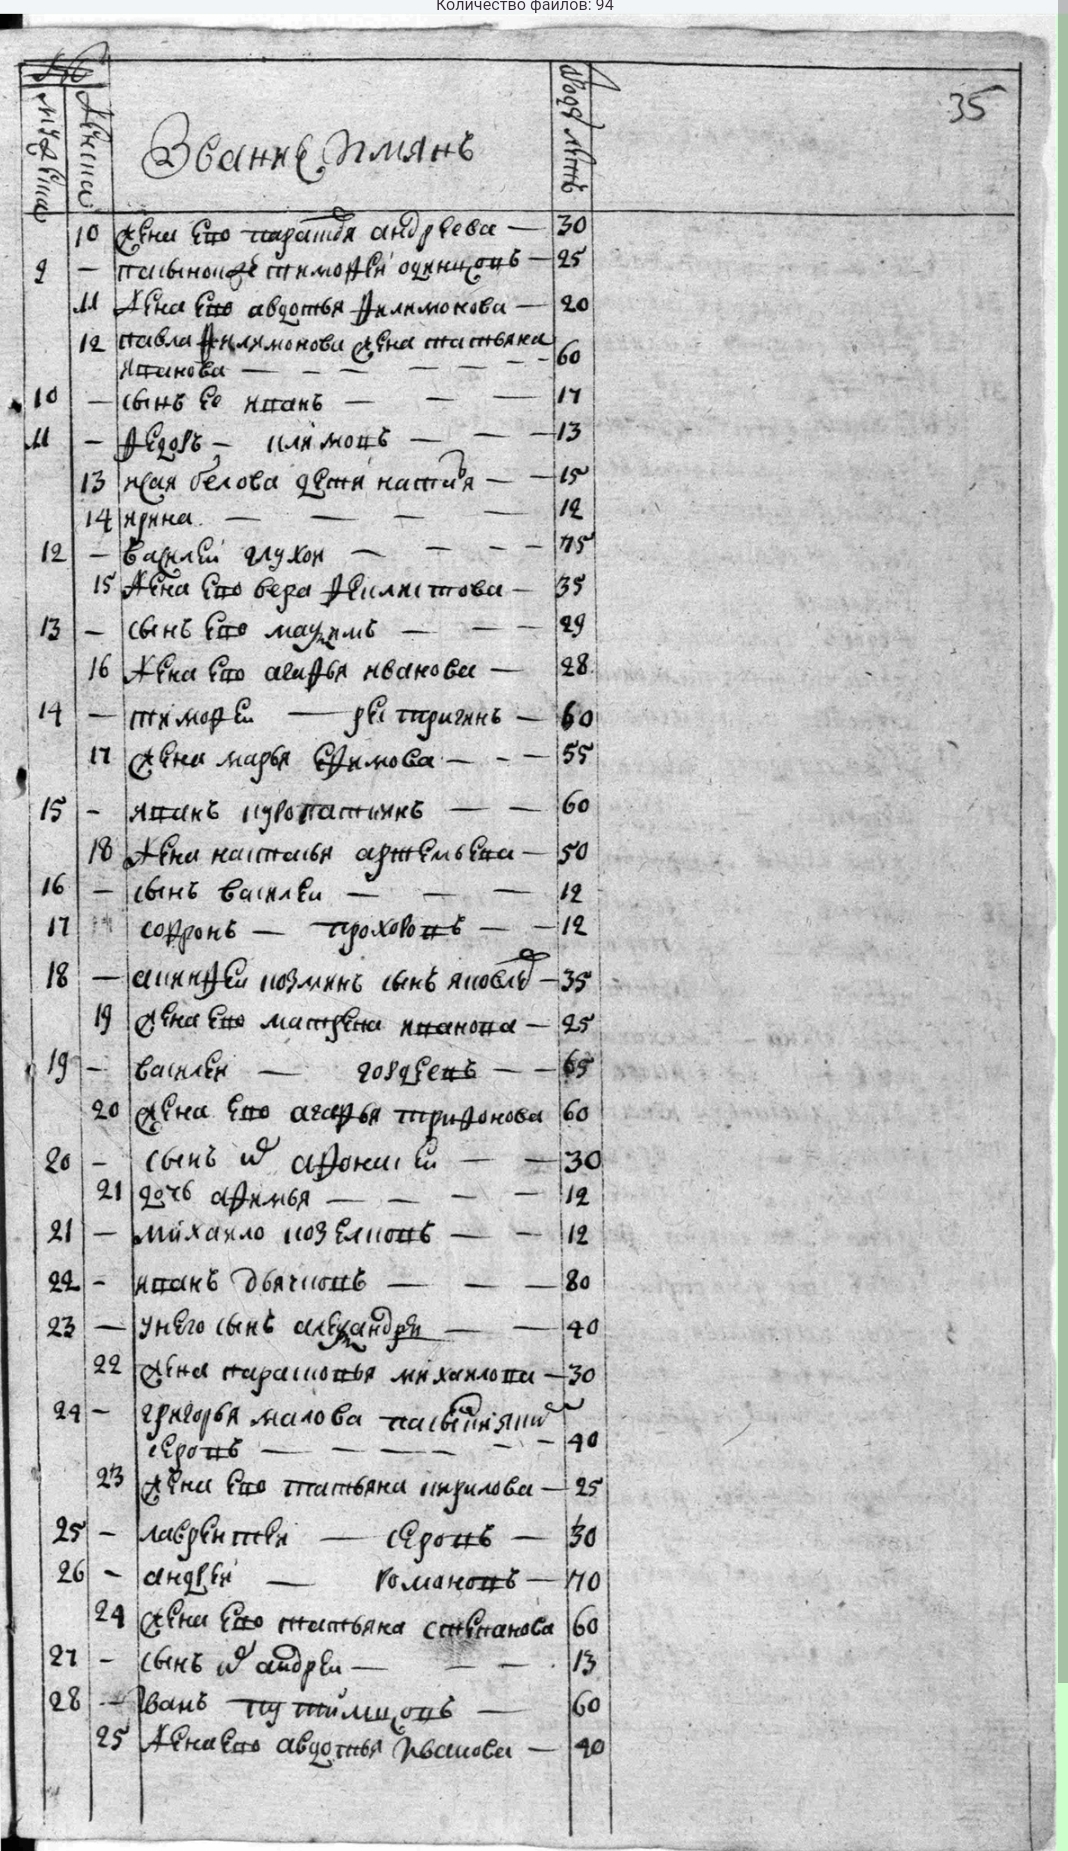 Количество файлов: 94
35
№
мужеска
женска
Звание имянъ
коде летъ
10 жена ево парасковя андреева — 30
9 — пасынокъ тимофей одинцовъ — 25
11 жена ево авдотья филимонова — 20
12 павла филимонова жена татьяна
иванова — 60
10 — сынъ ее иванъ — 17
11 — федоръ — климовъ — 13
13 белова дети настася — 15
14 ирина — 12
12 — василей глухои — 75
15 жена ево вера феилистова — 35
13 — сынъ ево мазимъ — 29
16 жена ево агафья иванова — 28
14 — тимофеи — 60
17 жена марья ефимова — 55
15 — иванъ куропаткинъ — 60
18 жена наталья артемьева — 50
16 — сынъ василеи — 12
17 софронъ — проховъ — 12
18 — аникеи козминъ сынъ яковлев — 35
19 жена ево матрена иванова — 25
19 — василеи — гордеевъ — 65
20 жена ево агафья трифонова 60
20 — сынъ ево афонасеи — 30
21 дочь афимья — 12
21 — михаило козелковъ — 12
22 — иванъ дьячковъ — 80
23 — у него сынъ алеѯандръ — 40
22 жена парасковья михаилова — 30
24 — григорья малова пасынки яков
серовъ — 40
23 жена ево татьяна кирилова — 25
25 — лаврентеи — серовъ — 30
26 — андреи — романовъ — 70
24 жена ево татьяна степанова 60
27 — сынъ ево андреи — 13
28 — иванъ путимцовъ — 60
25 жена ево авдотья иванова — 40